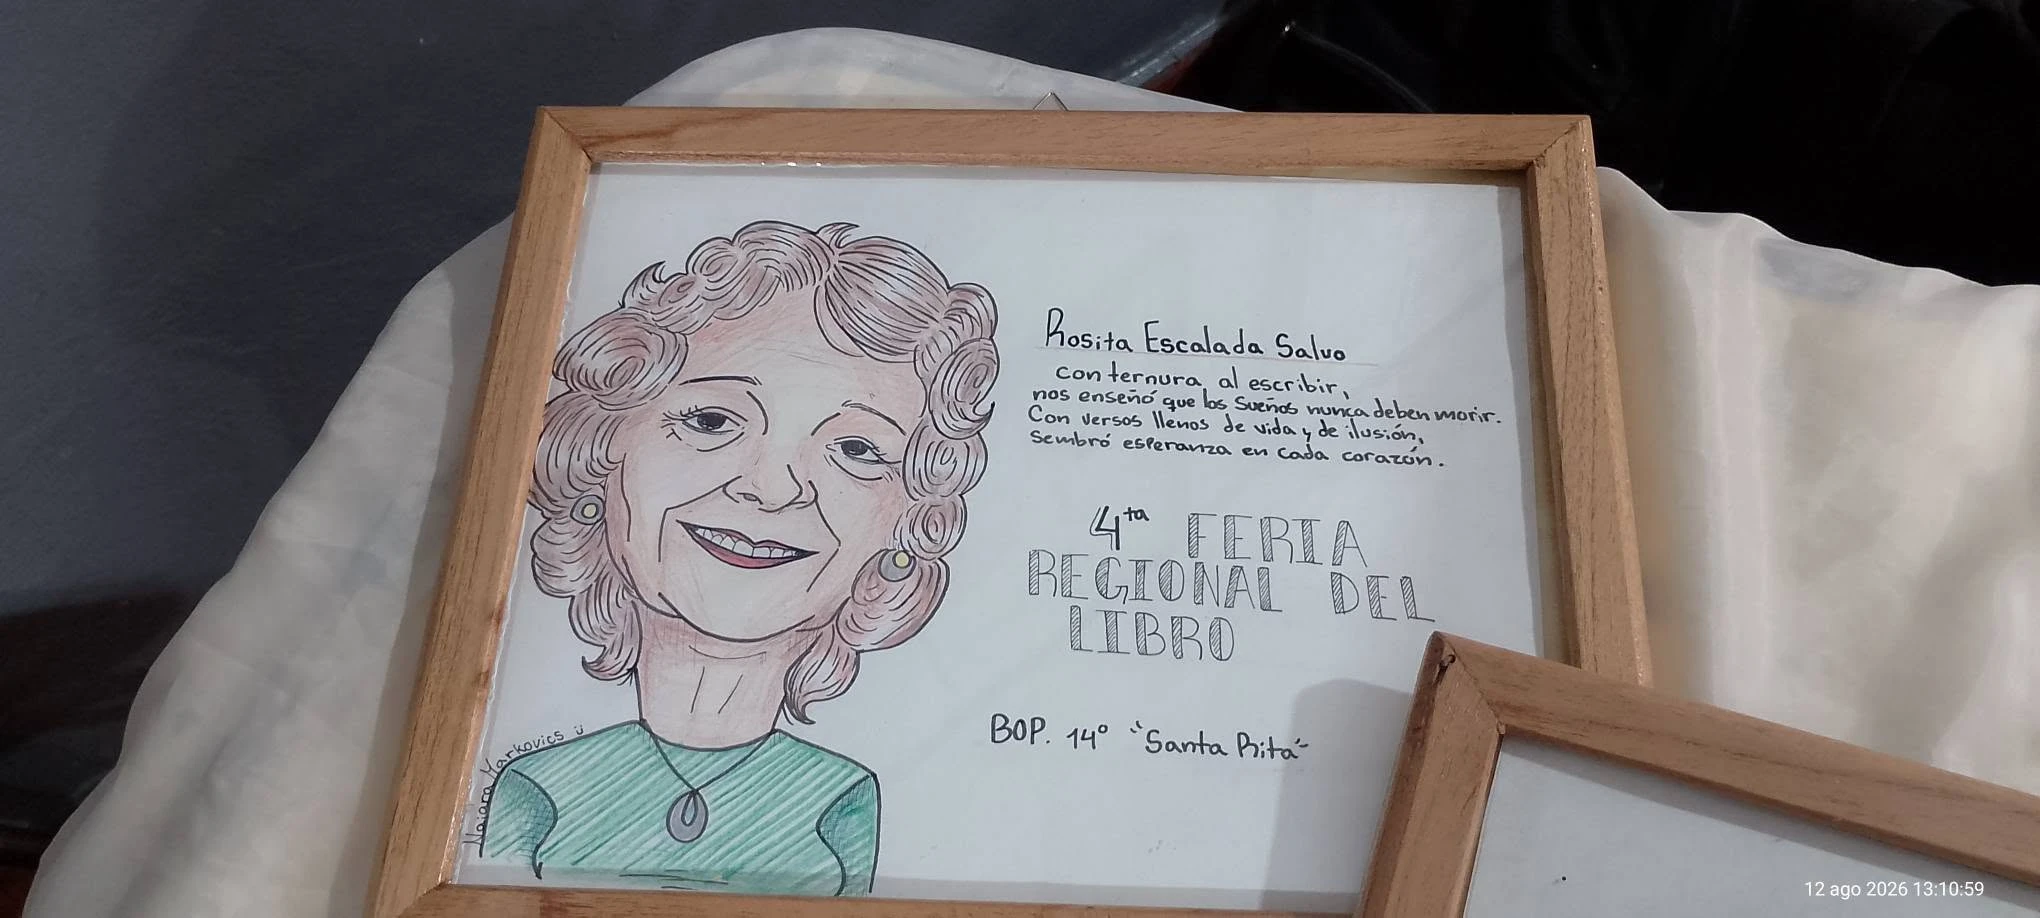 Rosita Escalada Salvo
con ternura al escribir,
nos enseñó que los sueños nunca deben morir.
Con versos llenos de vida y de ilusión,
sembró esperanza en cada corazón.
4ta FERIA
REGIONAL DEL
LIBRO
BOP. 14° "Santa Rita"
Naiara Markovics ü
12 ago 2026 13:10:59